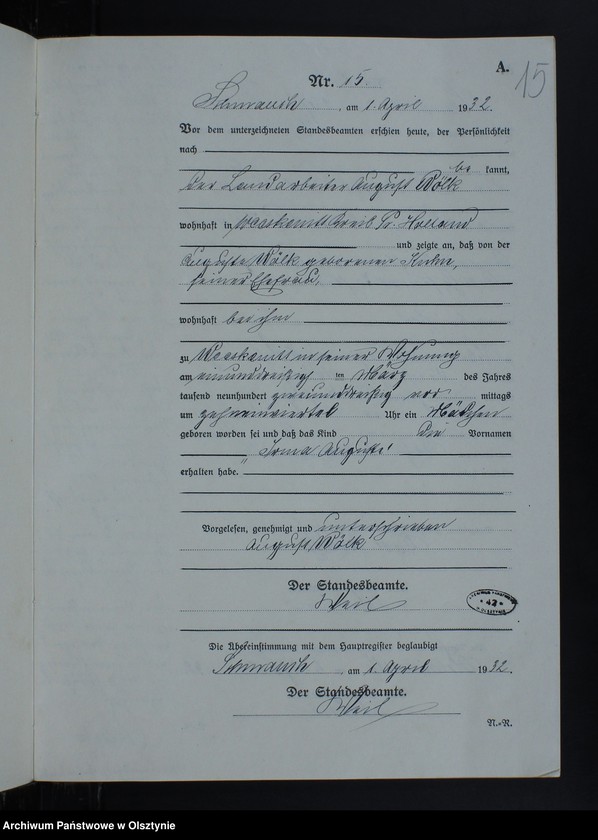 A.
15
Nr. 15.
Schmauch, am 1. April 1932.
Vor dem unterzeichneten Standesbeamten erschien heute, der Persönlichkeit
nach
be kannt,
der Landarbeiter August Wölk
wohnhaft in Weeskenitt Kreis Pr. Holland
und zeigte an, daß von der
Auguste Wölk geborenen Kuhn,
seiner Ehefrau,
wohnhaft bei ihm
zu Weeskenitt in seiner Wohnung
am einunddreißigsten März des Jahres
tausend neunhundert zweiunddreißig vor mittags
um zehneinviertel Uhr ein Mädchen
geboren worden sei und daß das Kind die Vornamen
„Irma Auguste“
erhalten habe.
Vorgelesen, genehmigt und unterschrieben
August Wölk
Der Standesbeamte.
Weil
42
Die Übereinstimmung mit dem Hauptregister beglaubigt
Schmauch, am 1. April 1932.
Der Standesbeamte.
Weil
N.-R.
Archiwum Państwowe w Olsztynie